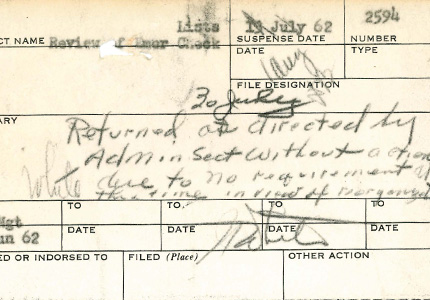 Lists 13 July 62 2594
CT NAME Review of Emer Check SUSPENSE DATE NUMBER
DATE TYPE
FILE DESIGNATION
30 July
ARY
Returned as directed by
Admin Sect without action
due to no requirement at
this time in view of reorganizat
TO TO TO TO
Mgt
un 62 DATE DATE DATE DATE
ED OR INDORSED TO FILED (Place) OTHER ACTION